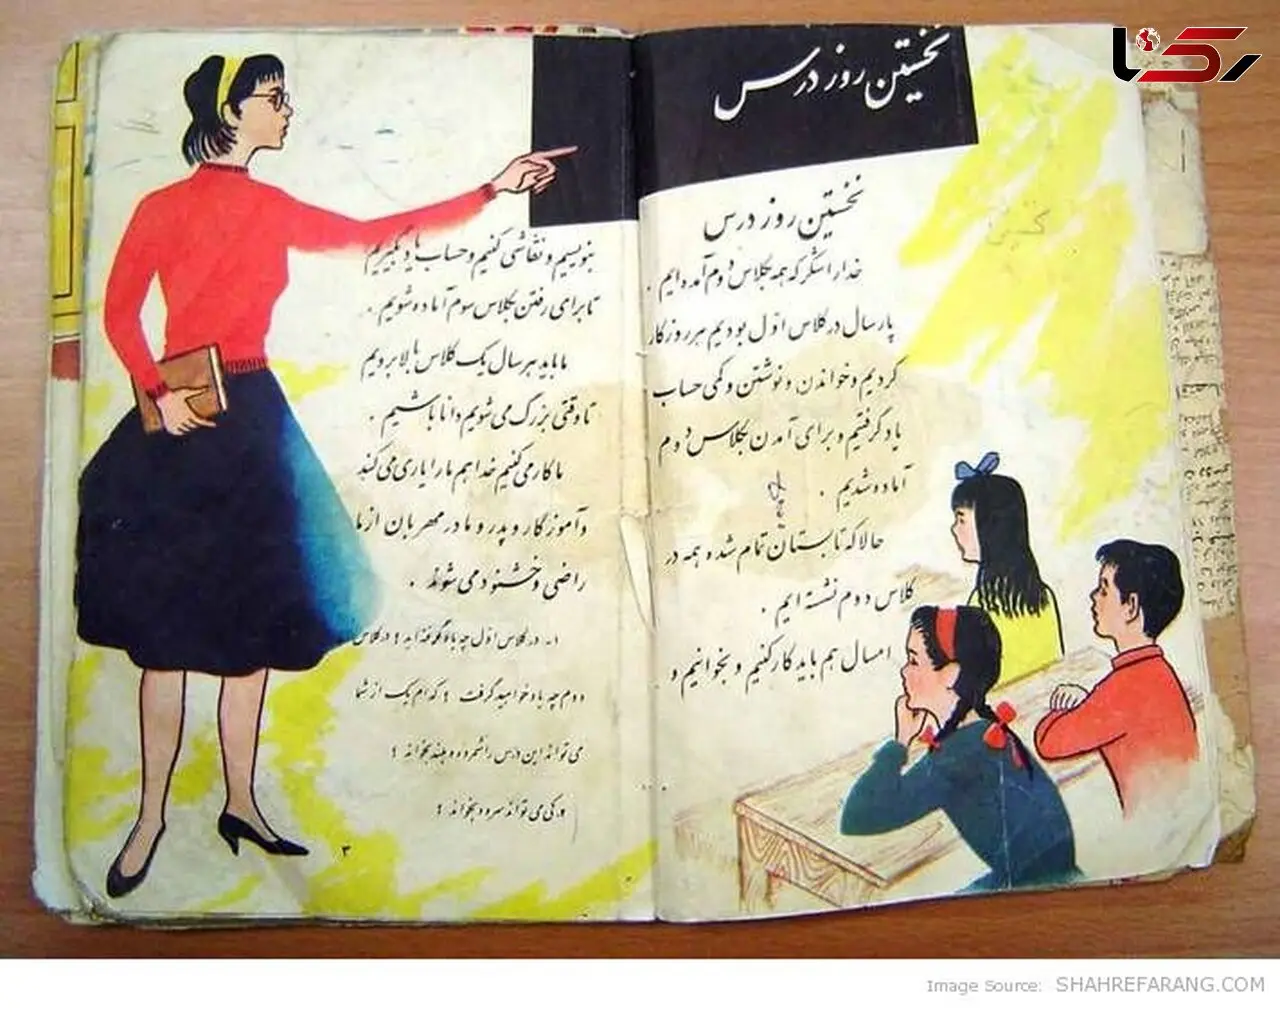 رکنا
نخستین روز درس
نخستین روز درس
خدا را شکر که همه بکلاس دوم آمده ایم .
پارسال در کلاس اوّل بودیم هر روز کار
کردیم و خواندن و نوشتن و کمی حساب
یاد گرفتیم و برای آمدن بکلاس دوم
آماده شدیم .
حالا که تابستان تمام شده و همه در
کلاس دوم نشسته ایم .
امسال هم باید کار کنیم و بخوانیم و
بنویسیم و نقاشی کنیم و حساب یاد بگیریم
تا برای رفتن بکلاس سوم آماده شویم .
ما باید هر سال یک کلاس بالا برویم
تا وقتی بزرگ می شویم دانا باشیم .
ما کار می کنیم خدا هم ما را یاری می کند
و آموزگار و پدر و مادر مهربان از ما
راضی و خشنود می شوند .
۱ـ در کلاس اوّل چه یاد گرفته اید ؟ در کلاس
دوم چه یاد خواهید گرفت ؟ کدام یک از شما
می تواند این درس را شمرده و بلند بخواند ؟
و کی می تواند سرود بخواند ؟
۳
Image Source: SHAHREFARANG.COM